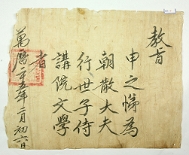 教旨
申之悌為
朝散大夫
行世子侍
講院文學
者
萬曆三十五年二月初六日